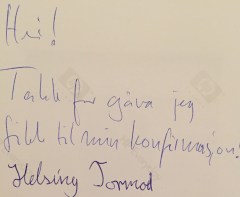 Hei!
Takk for gåva jeg
fikk til min konfirmasjon!
Helsing Tormod